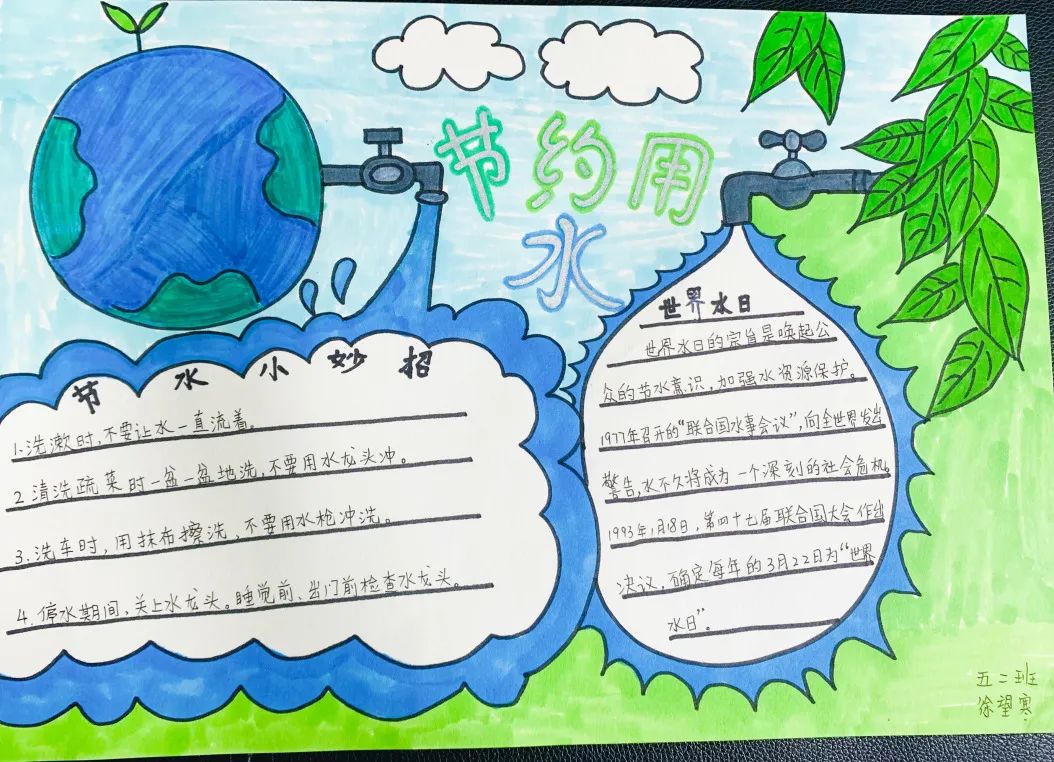 节约用
水
节水小妙招
1.洗漱时,不要让水一直流着。
2 清洗疏菜时一盆一盆地洗,不要用水龙头冲。
3.洗车时,用抹布擦洗,不要用水枪冲洗。
4.停水期间,关上水龙头。睡觉前、出门前检查水龙头。
世界水日
世界水日的宗旨是唤起公
众的节水意识,加强水资源保护。
1977年召开的“联合国水事会议”,向全世界发出
警告,水不久将成为一个深刻的社会危机。
1993年1月18日,第四十七届联合国大会作出
决议,确定每年的3月22日为“世界
水日”。
五二班
徐望寒